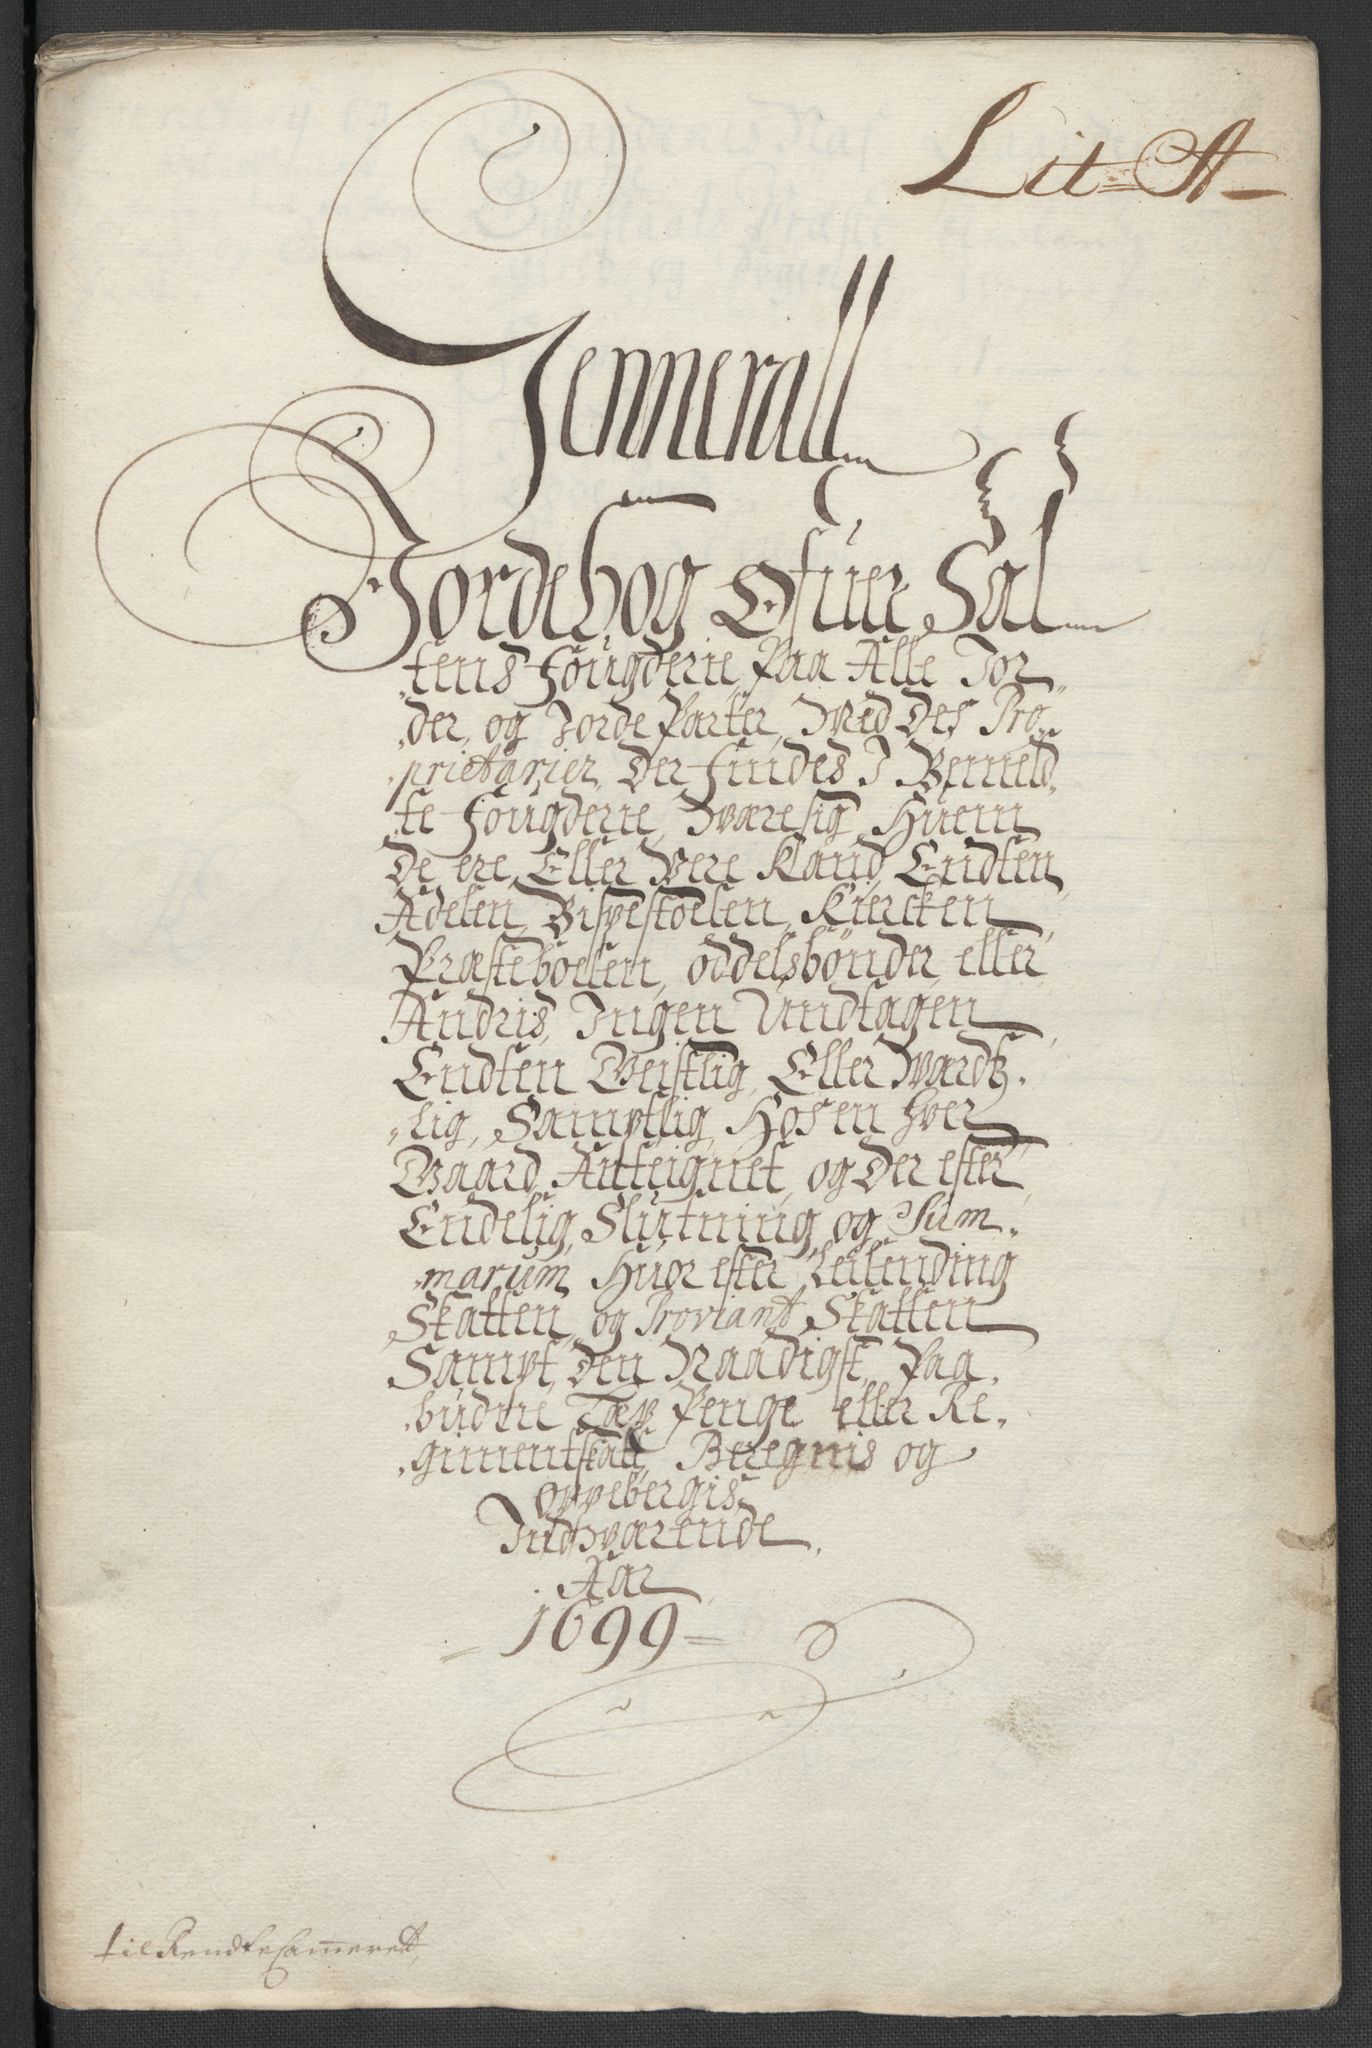 Lit: A
Gennerall
Jordebog Ofuer Sal
tens fougderie Paa Alle Jor
der og Jorde Parter, Med Des Pro
prietarier, Der findes I Bemeld
te fougderie, Hværesig Huem
De ere, Eller Vere Kand, Endten
Adelen, Bispestoelen, Kiercken
Præsteboelen, oddelsbönder, eller
Andris, Ingen Undtagen
Endten Geistlig, Eller Værdtz
lig, Samptlig, Hos en hver
Gaard Anteignet, og Der efter
Endelig Slutning og Sum
marum Huor efter Leilending
Skatten, og Proviant Skatten
Sampt, Den Naadigst, Paa
budne Tæp Penge eller Re
gimentskatt, Beregnis og
oppebergis
Indværende
Aar
1699
til Rendte Cammeret,